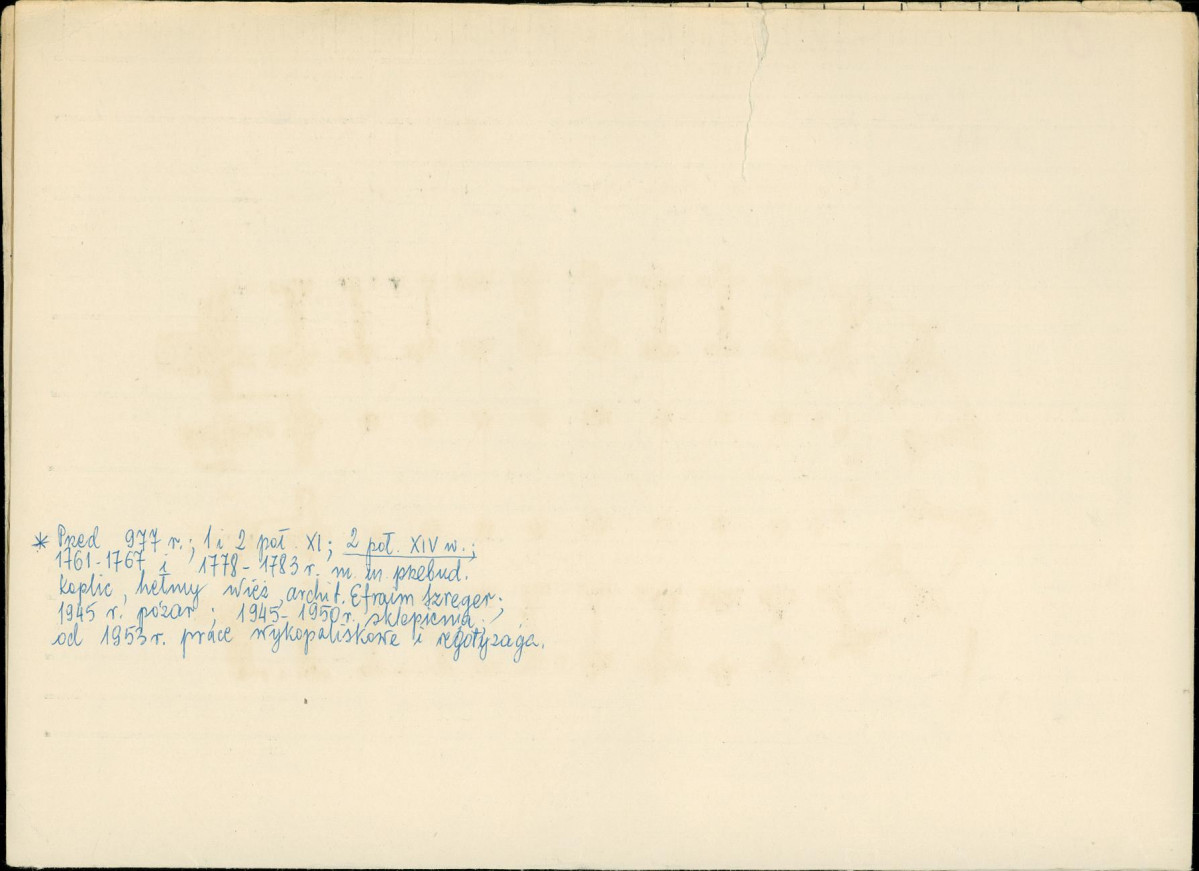 * Przed 977 r.; 1 i 2 poł. XI; 2 poł. XIV w.;
1761-1767 i 1778-1783 r. m. in. przebud.
kaplic, hełmy wież, archit. Efraim Szreger;
1945 r. pożar; 1945-1950 r. sklepienia;
od 1953 r. prace wykopaliskowe i regotyzacja.